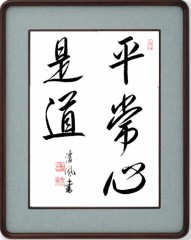 平常心
是道
清風書